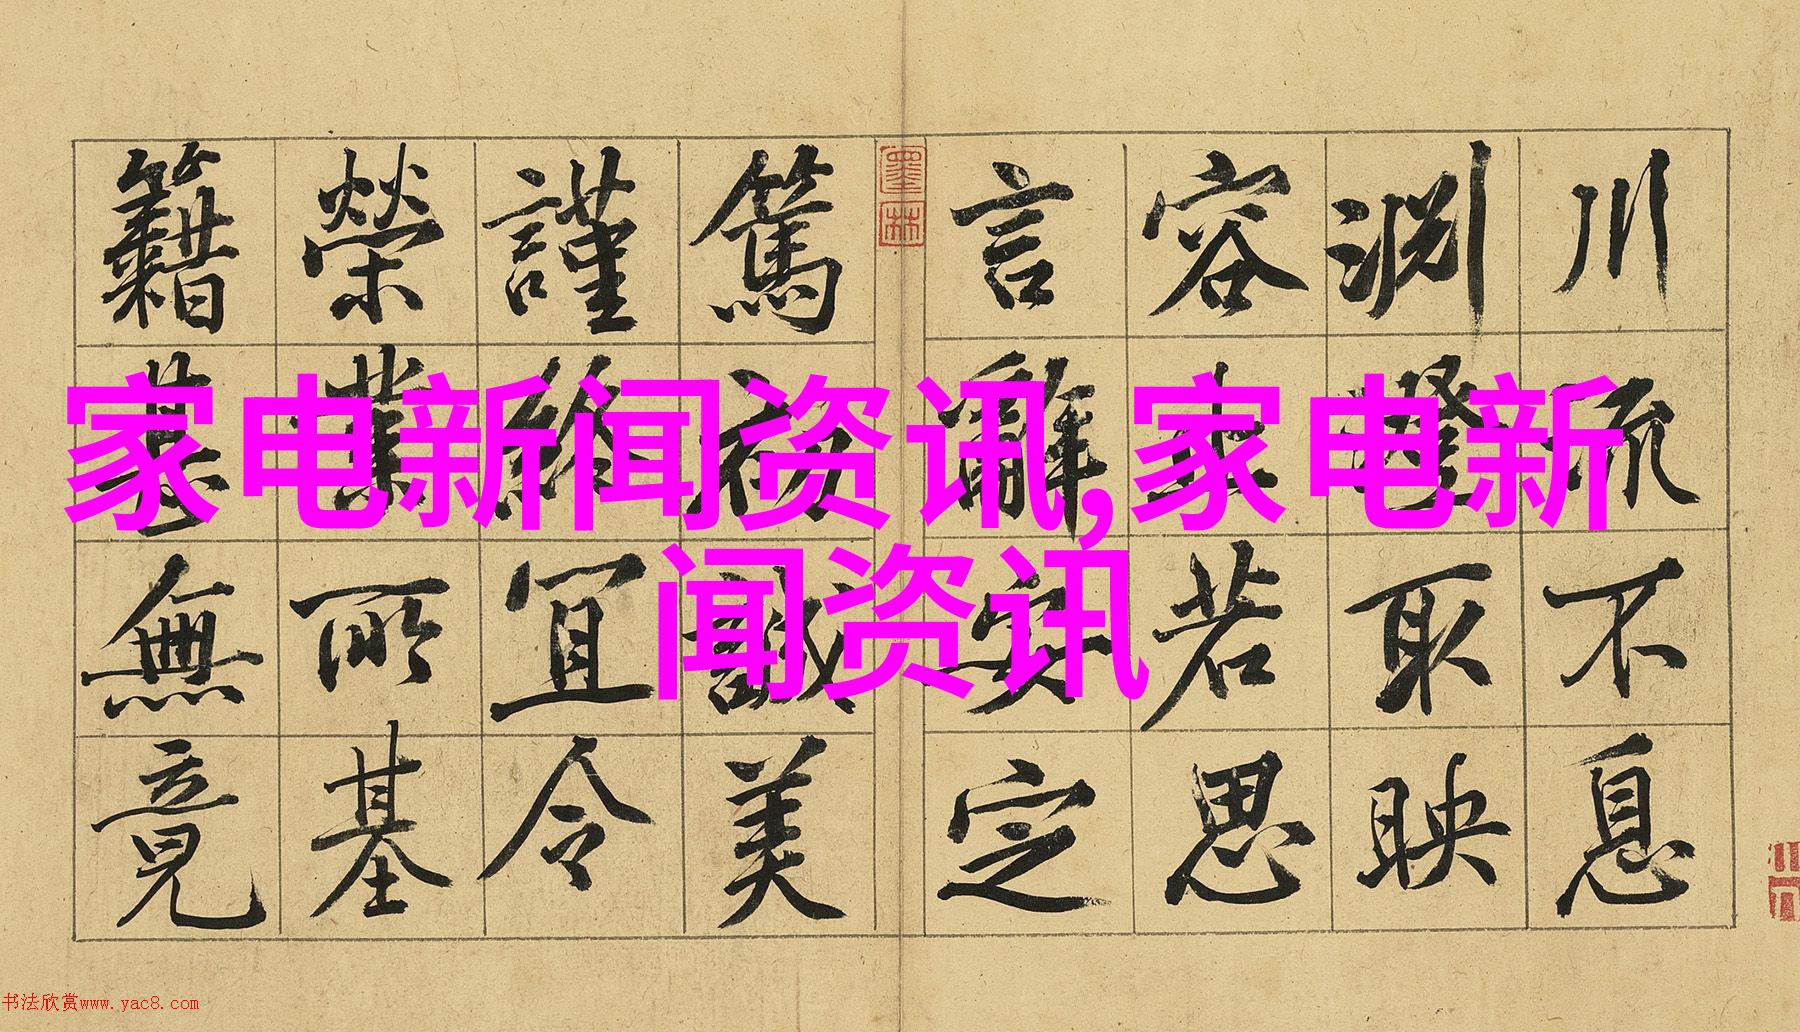 川流不息
淵澄取映
容止若思
言辭安定
墨林
篤初誠美
謹終宜令
榮業所基
籍甚無竟
家电新闻资讯,家电新
闻资讯
书法欣赏www.yac8.com